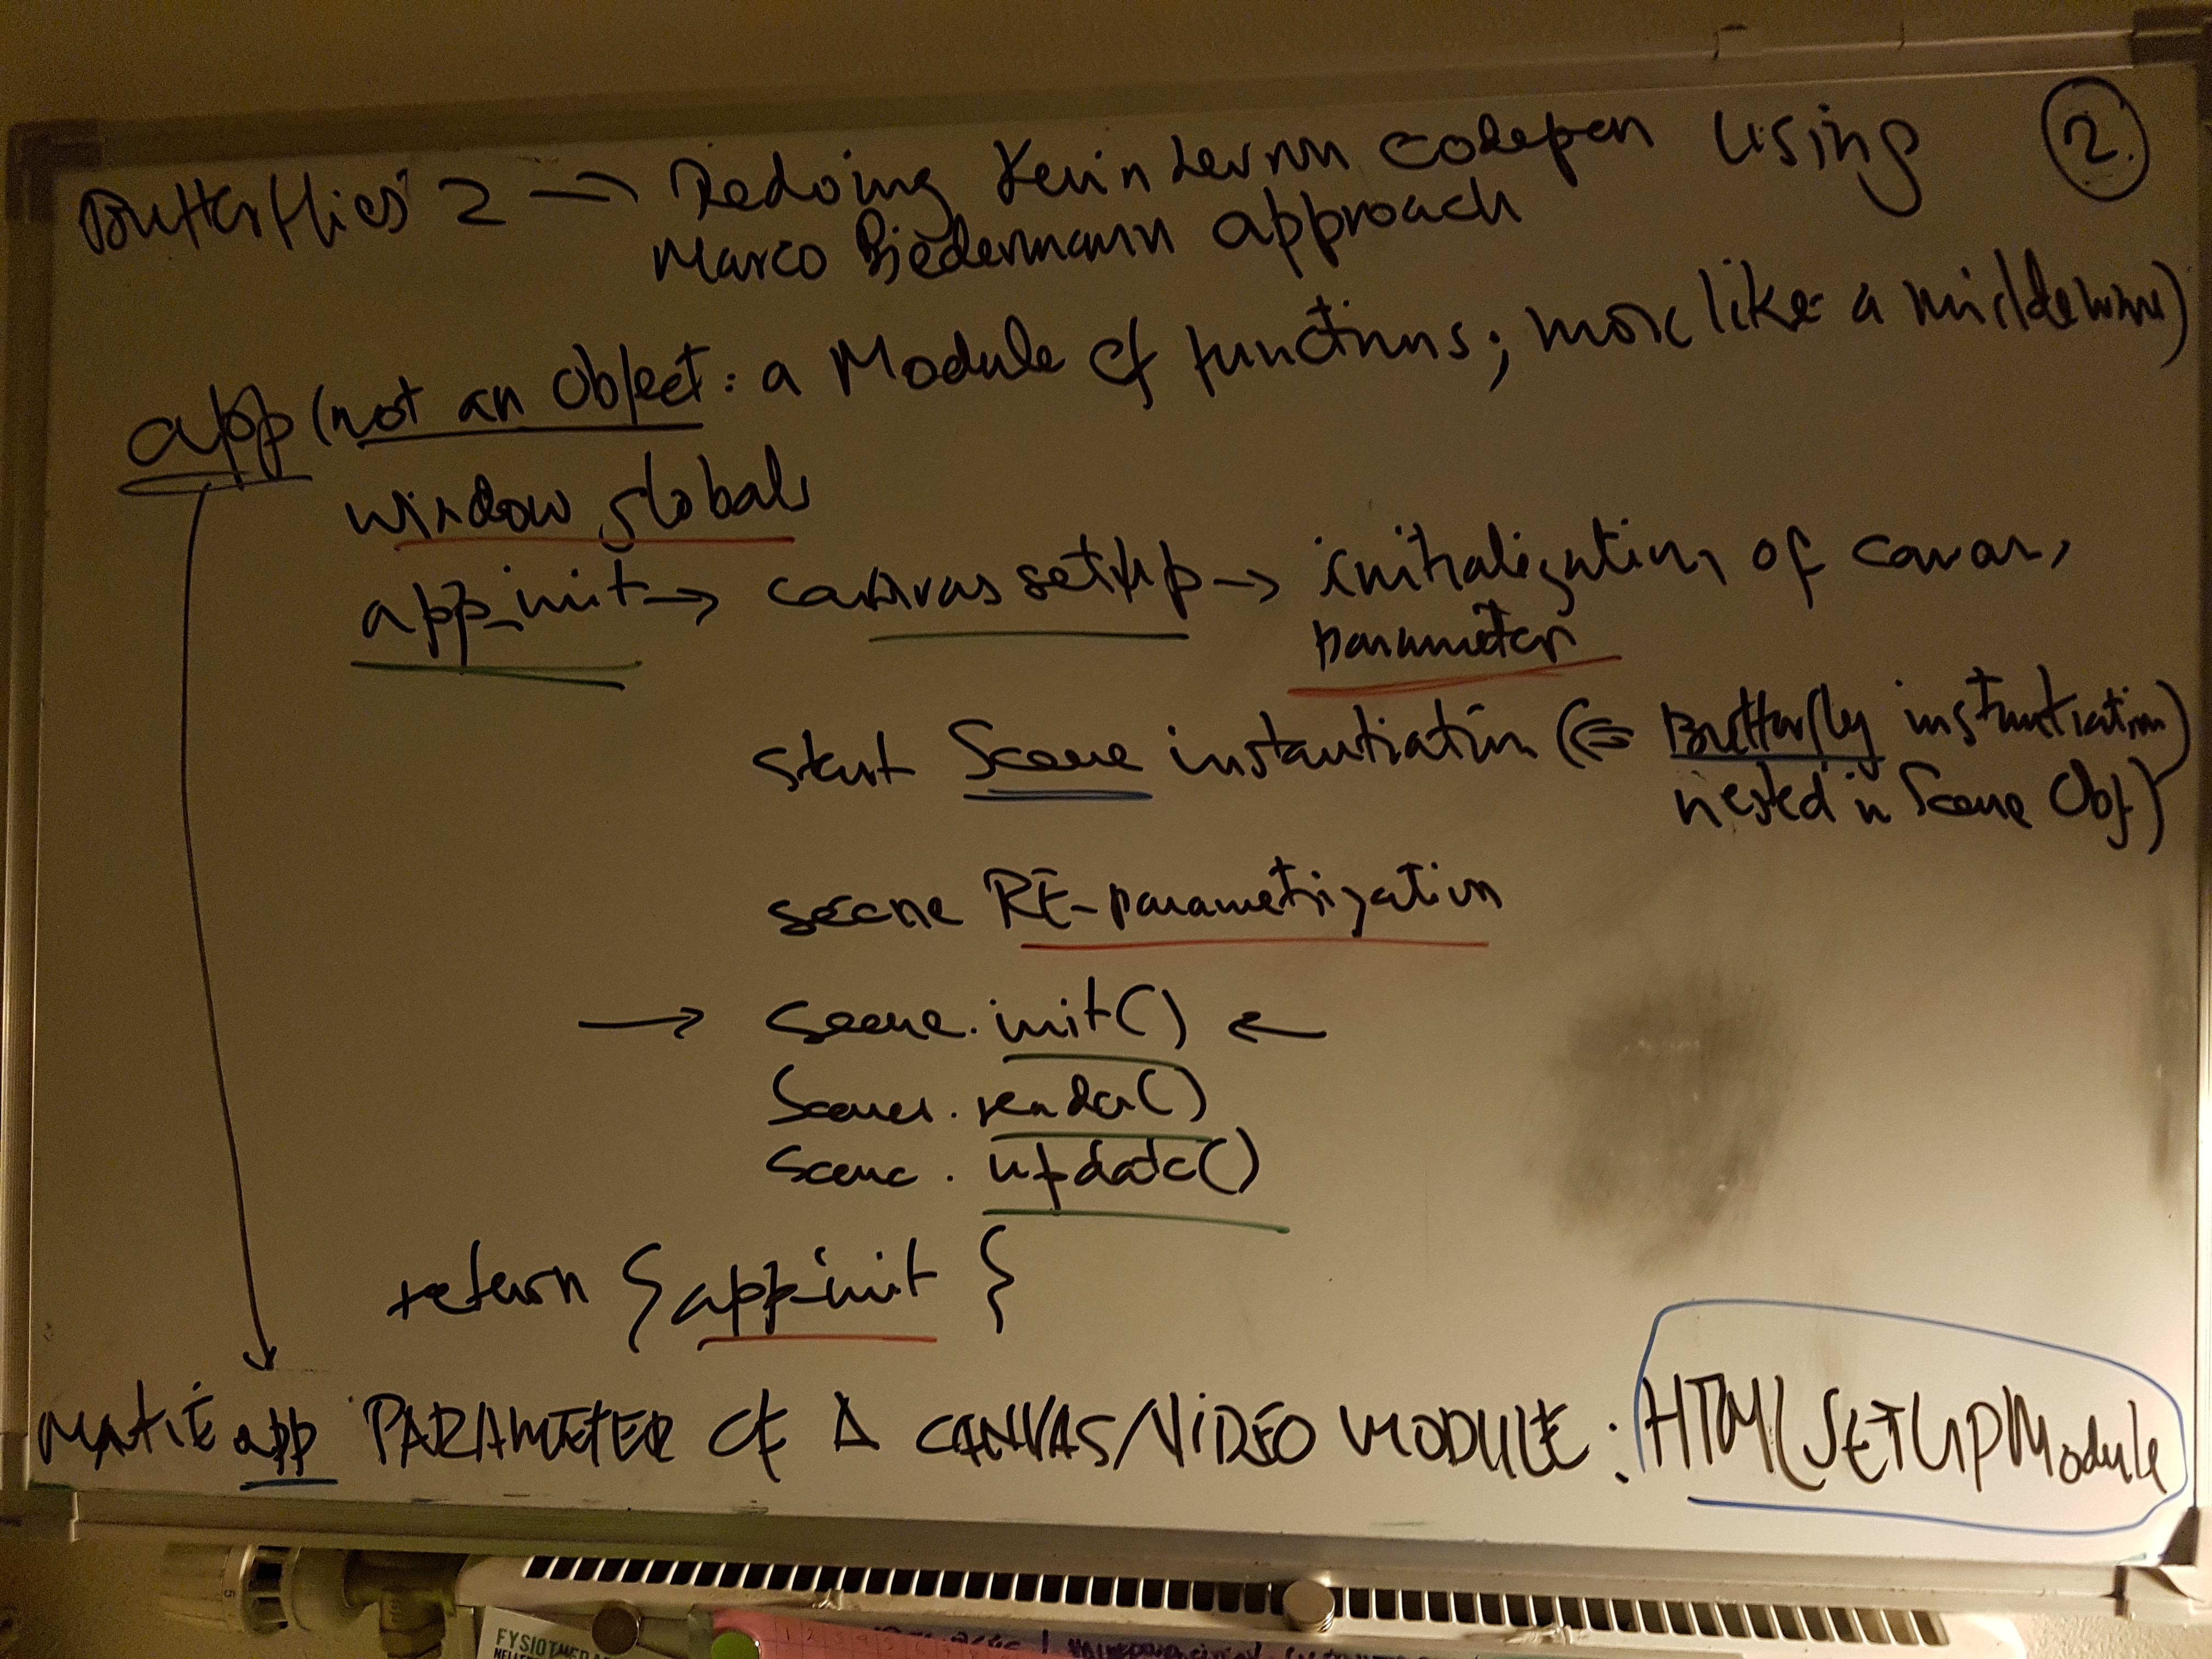 Butterflies 2 → Redoing Kevin Levron codepen using
②.
Marco Biedermann approach
app (not an Object: a Module of functions; more like a middleware)
window globals
app_init → canvas setup → initialization of canvas
parameter
start Scene instantiation (⇐ Butterfly instantiation
nested in Scene Obj)
scene RE-parametrization
→ scene.init() ←
Scene.render()
Scene.update()
return { app_init }
MAKE app PARAMETER OF A CANVAS/VIDEO MODULE: HTMLSETUPModule
5
FYSIOTHERA